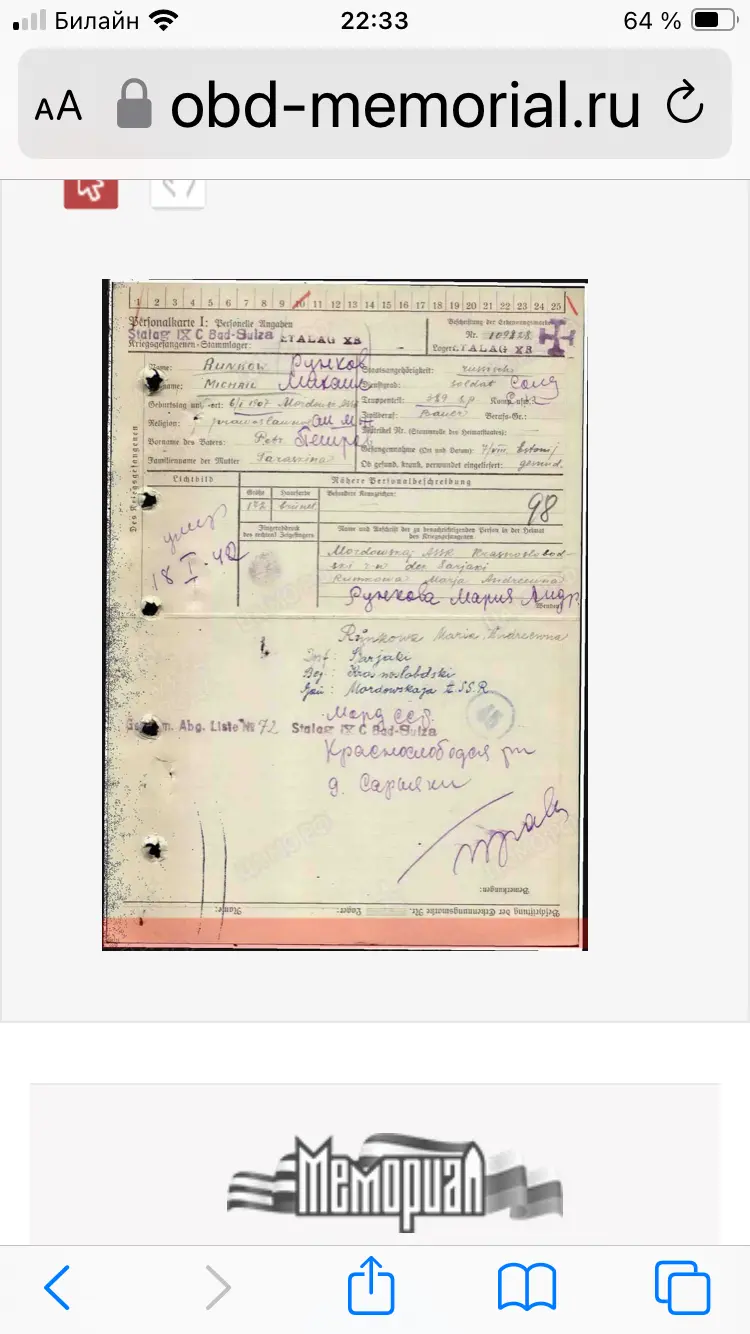 Билайн 22:33 64 %
AA obd-memorial.ru
1 2 3 4 5 6 7 8 9 10 11 12 13 14 15 16 17 18 19 20 21 22 23 24 25
Personalkarte I: Personelle Angaben
Beschriftung der Erkennungsmarke
Stalag IX C Bad-Sulza STALAG XB
Nr. 109828
Kriegsgefangenen-Stammlager:
Lager: STALAG XB
Des Kriegsgefangenen
Name: RUNKOW Рунков
Staatsangehörigkeit: russisch
MICHAIL Михаил
Dienstgrad: soldat Солд
Geburtstag und -ort: 6/I 1907
Truppenteil: 789
Religion:
Zivilberuf: Bauer Berufs-Gr.:
Matrikel Nr. (Stammrolle des Heimatstaates):
Vorname des Vaters: Petr
Gefangennahme (Ort und Datum):
Familienname der Mutter
Ob gesund, krank, verwundet eingeliefert: gesund.
Lichtbild
Nähere Personalbeschreibung
Größe Haarfarbe Besondere Kennzeichen:
172 brünet
98
Fingerabdruck
des rechten Zeigefingers
Name und Anschrift der zu benachrichtigenden Person in der Heimat
des Kriegsgefangenen
умер
18 I. 42
Mordowskaj ASSR Krasnoslobod-
ski r-n der Sarjaki
Runkowa Marja Andreewna
Рункова Мария Андр
Wenden!
Runkowa Maria Andreewna
Dorf: Sarjaki
Krasnoslobdski
Mordowskaja
Морд ССР
Abg. Liste № 72 Stalag IX C Bad-Sulza
Краснослободск рн
д. Сарьяки
Bemerkungen:
Beschriftung der Erkennungsmarke Nr. Lager: Name:
Мемориал